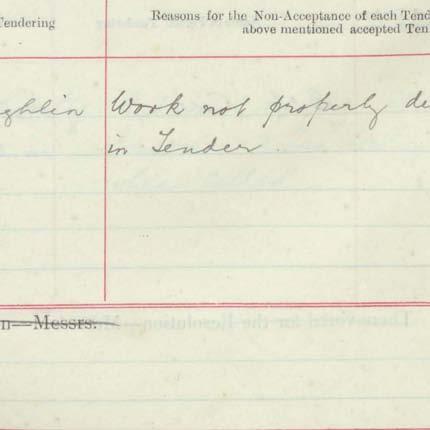 Tendering
Reasons for the Non-Acceptance of each Tend
above mentioned accepted Ten
ghlin Work not properly de
in Tender
n—Messrs.